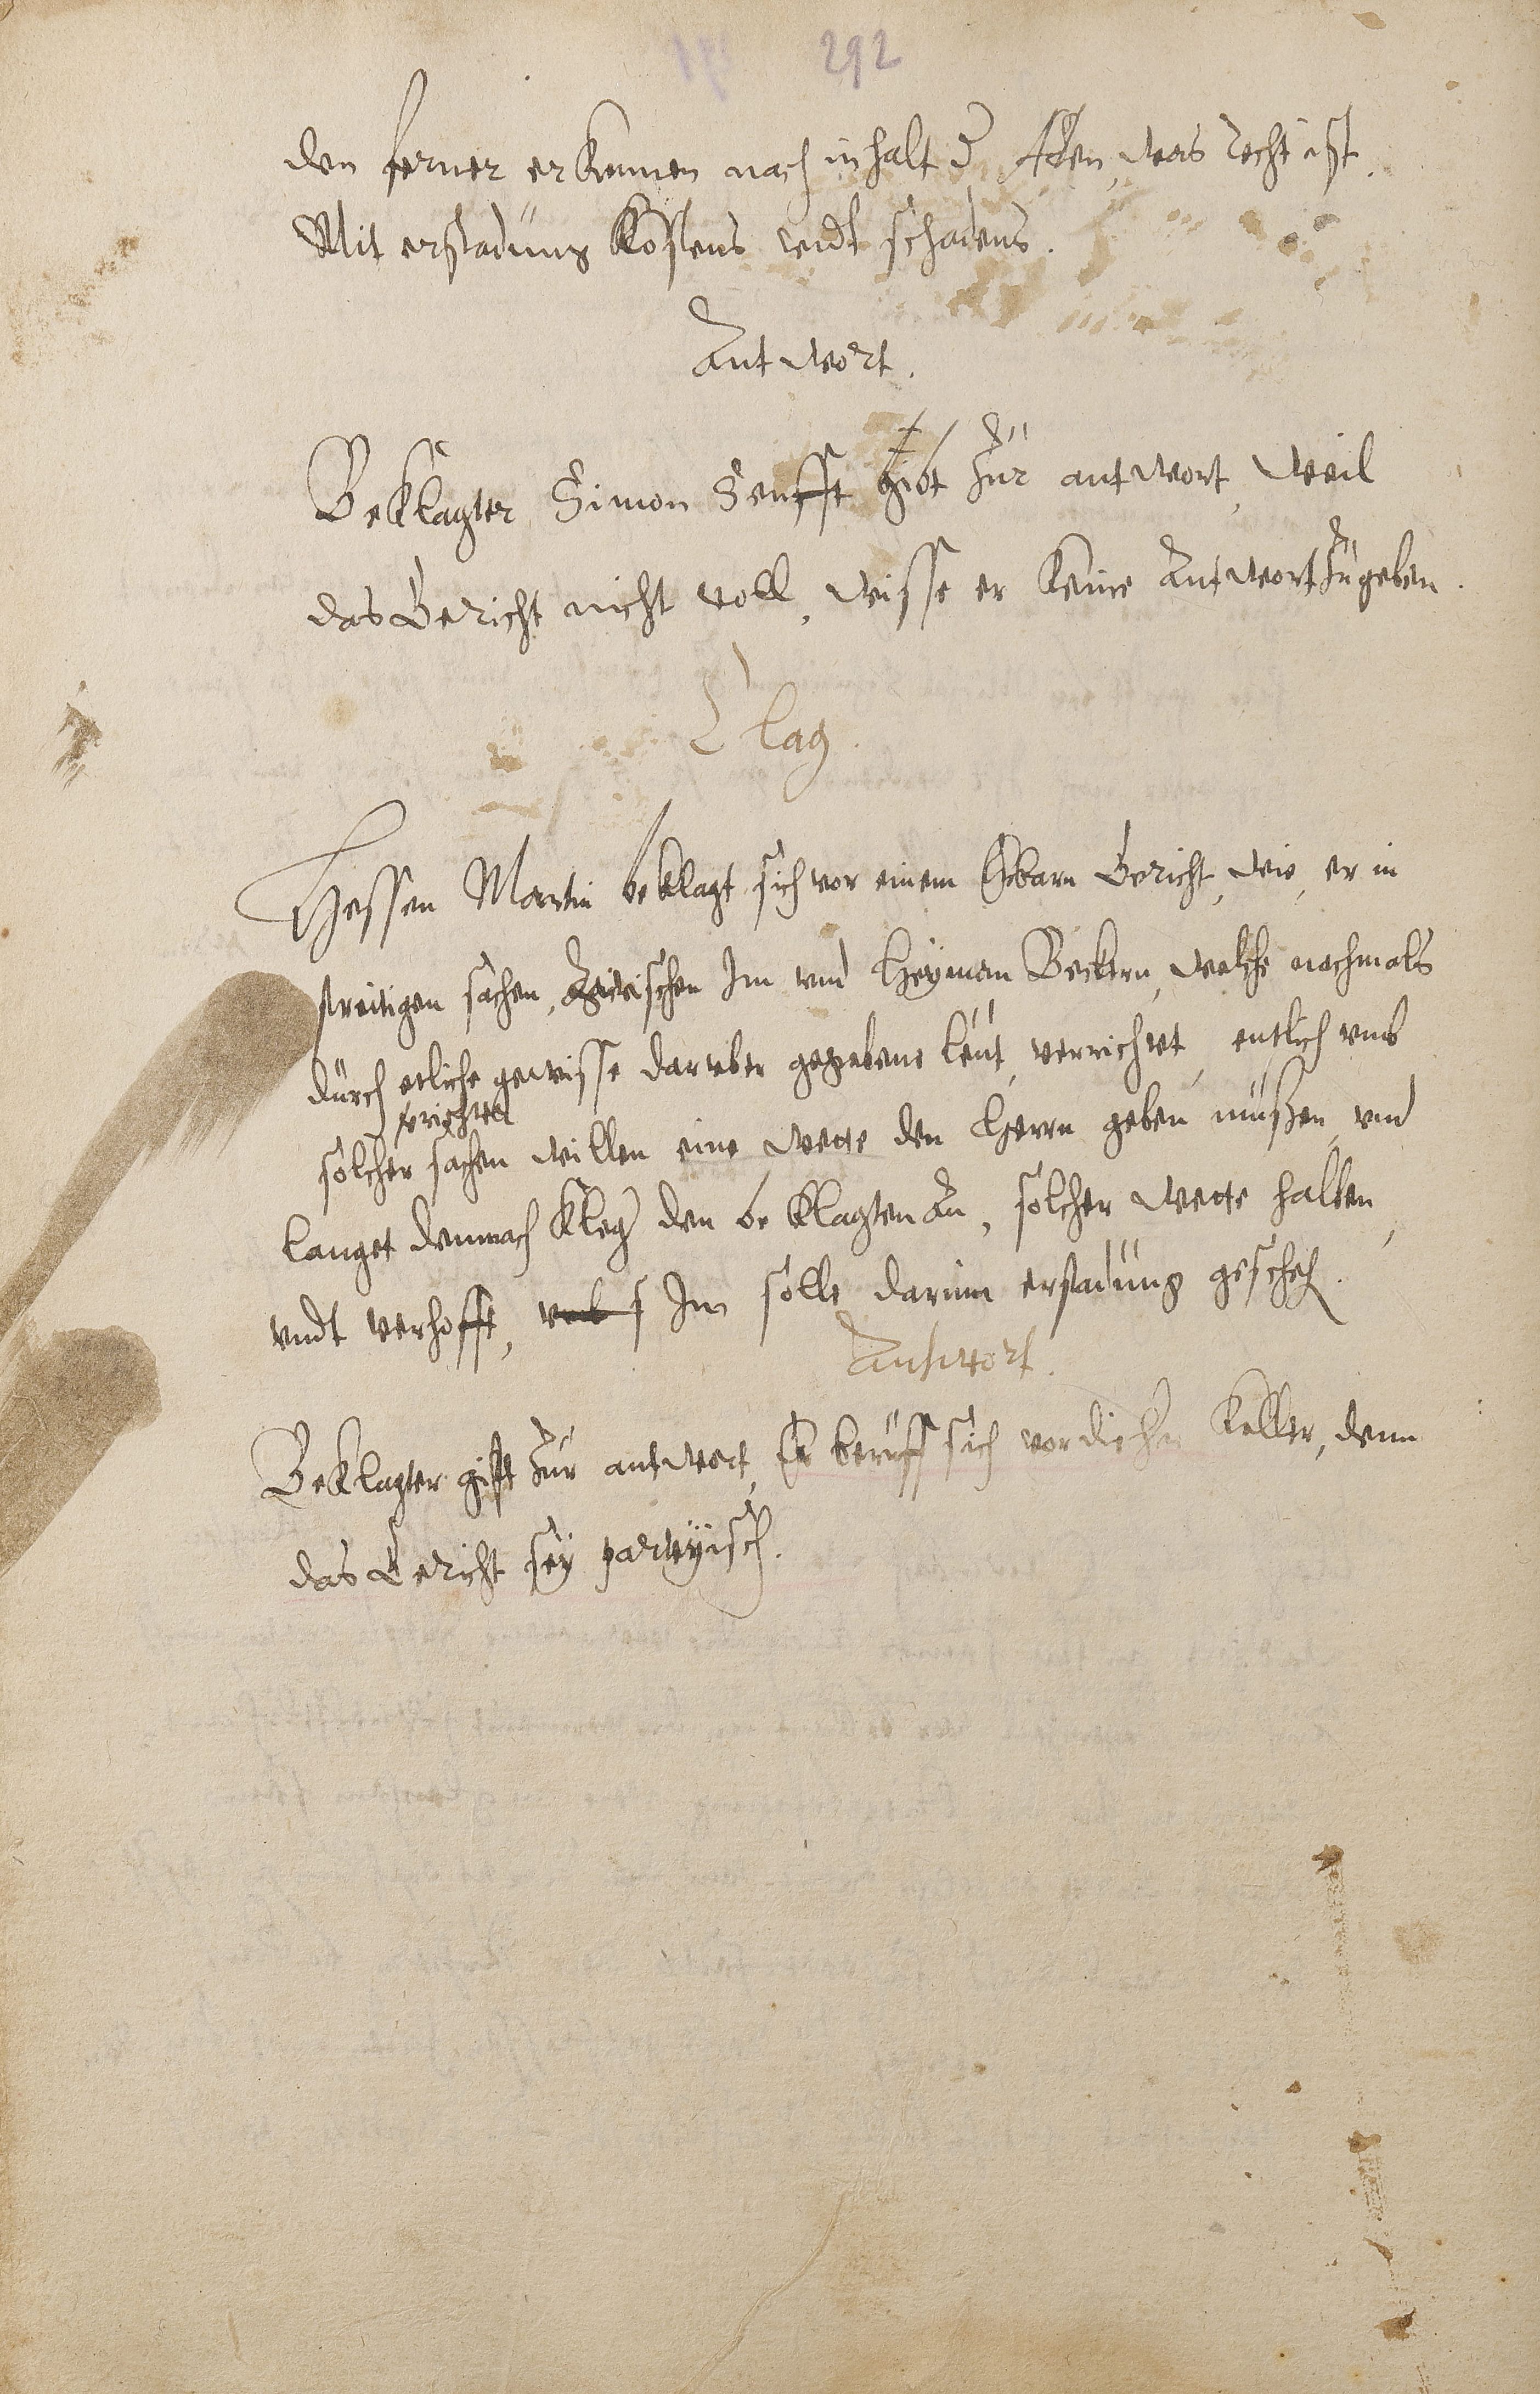 292
den ferner erkennen nach inhalt d' Akten, was recht ist.
Mit erstadung Kostens vndt schadens.
Antwort.
Beklagter Simon Senfft gibt zur antwort, weil
das Gericht nicht voll, wisse er keine Antwort zu geben.
Clag.
Hessen Martin beklagt sich vor einem Erbarn Gericht, wie, er in
streitigen sachen, zwischen Im vnd Heyman Beckern, welche nachmals
durch etliche gewisse daruber gegebene leut, verrichtet, entlich vmb
solcher sachen willen eine wette den Herrn geben mußen, vnd
langet demnach Kleger den beklagten an, solcher wette halben,
vndt verhofft, Im solle darum erstadung gescheh.
Antwort.
Beklagter gibt zur antwort, Er beruff sich vor die Keller, denn
das Gericht sey parteyisch.